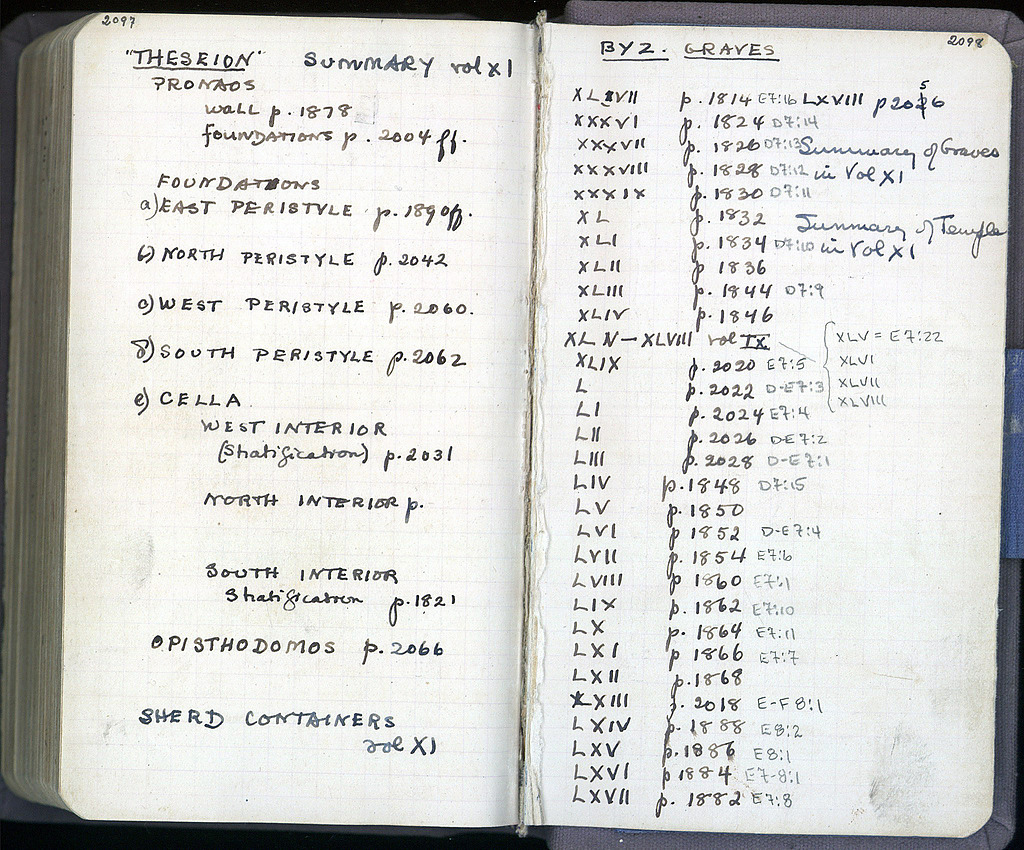 2097
"THESEION" SUMMARY vol XI
PRONAOS
wall p. 1878
foundations p. 2004 ff.
FOUNDATIONS
a) EAST PERISTYLE p. 1890 ff.
b) NORTH PERISTYLE p. 2042
c) WEST PERISTYLE p. 2060.
δ) SOUTH PERISTYLE p. 2062
e) CELLA
WEST INTERIOR
(Stratification) p. 2031
NORTH INTERIOR p.
SOUTH INTERIOR
Stratification p. 1821
OPISTHODOMOS p. 2066
SHERD CONTAINERS
vol XI
2098
BYZ. GRAVES
p. 1814 E7:16 LXVIII
XXXVI p. 1824 D7:14
XXXVII p. 1826 D7:13 Summary of Graves
XXXVIII p. 1828 D7:12 in Vol XI
XXXIX p. 1830 D7:11
XL p. 1832 Summary of Temple
XLI p. 1834 D7:10 in Vol XI
XLII p. 1836
XLIII p. 1844 D7:9
XLIV p. 1846
XLV—XLVIII vol IX { XLV = E7:22
XLIX p. 2020 E7:5 XLVI
L p. 2022 D-E7:3 XLVII
LI p. 2024 E7:4 XLVIII
LII p. 2026 DE7:2
LIII p. 2028 D-E7:1
LIV p. 1848 D7:15
LV p. 1850
LVI p. 1852 D-E7:4
LVII p. 1854 E7:6
LVIII p 1860 E7:1
LIX p. 1862 E7:10
LX p. 1864 E7:11
LXI p 1866 E7:7
LXII p. 1868
LXIII p. 2018 E-F8:1
LXIV p. 1888 E8:2
LXV p. 1886 E8:1
LXVI p 1884 E7-8:1
LXVII p. 1882 E7:8